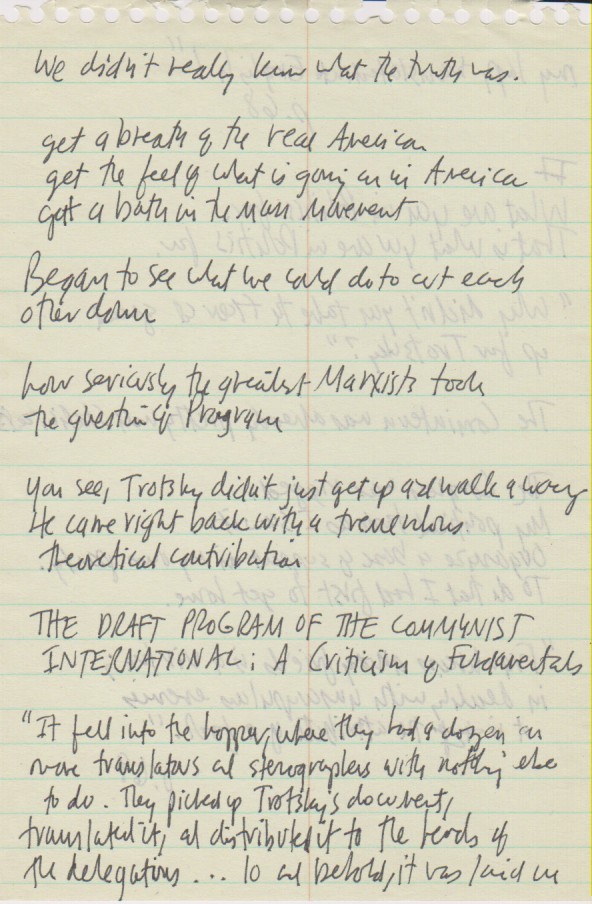 We didn't really know what the truth was.
get a breath of the real American
get the feel of what is going on in America
get a bath in the mass movement
Began to see what we could do to cut each
other down
how seriously the greatest Marxists took
the question of Program
You see, Trotsky didn't just get up and walk away
He came right back with a tremendous
theoretical contribution
THE DRAFT PROGRAM OF THE COMMUNIST
INTERNATIONAL: A Criticism of Fundamentals
"It fell into the hopper, where they had a dozen or
more translators and stenographers with nothing else
to do. They picked up Trotsky's document,
translated it, and distributed it to the heads of
the delegations ... lo and behold, it was laid in